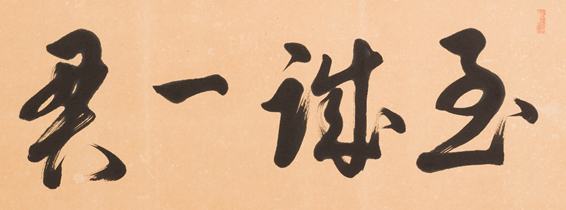 至誠一貫